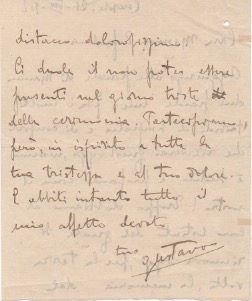 distacco dolorosissimo!
Ci duole il non poter essere
presenti nel giorno triste
della cerimonia. Parteciperemo
però, in ispirito a tutta la
tua tristezza e al tuo dolore.
E abbiti intanto tutto il
mio affetto devoto
tuo
Gustavo